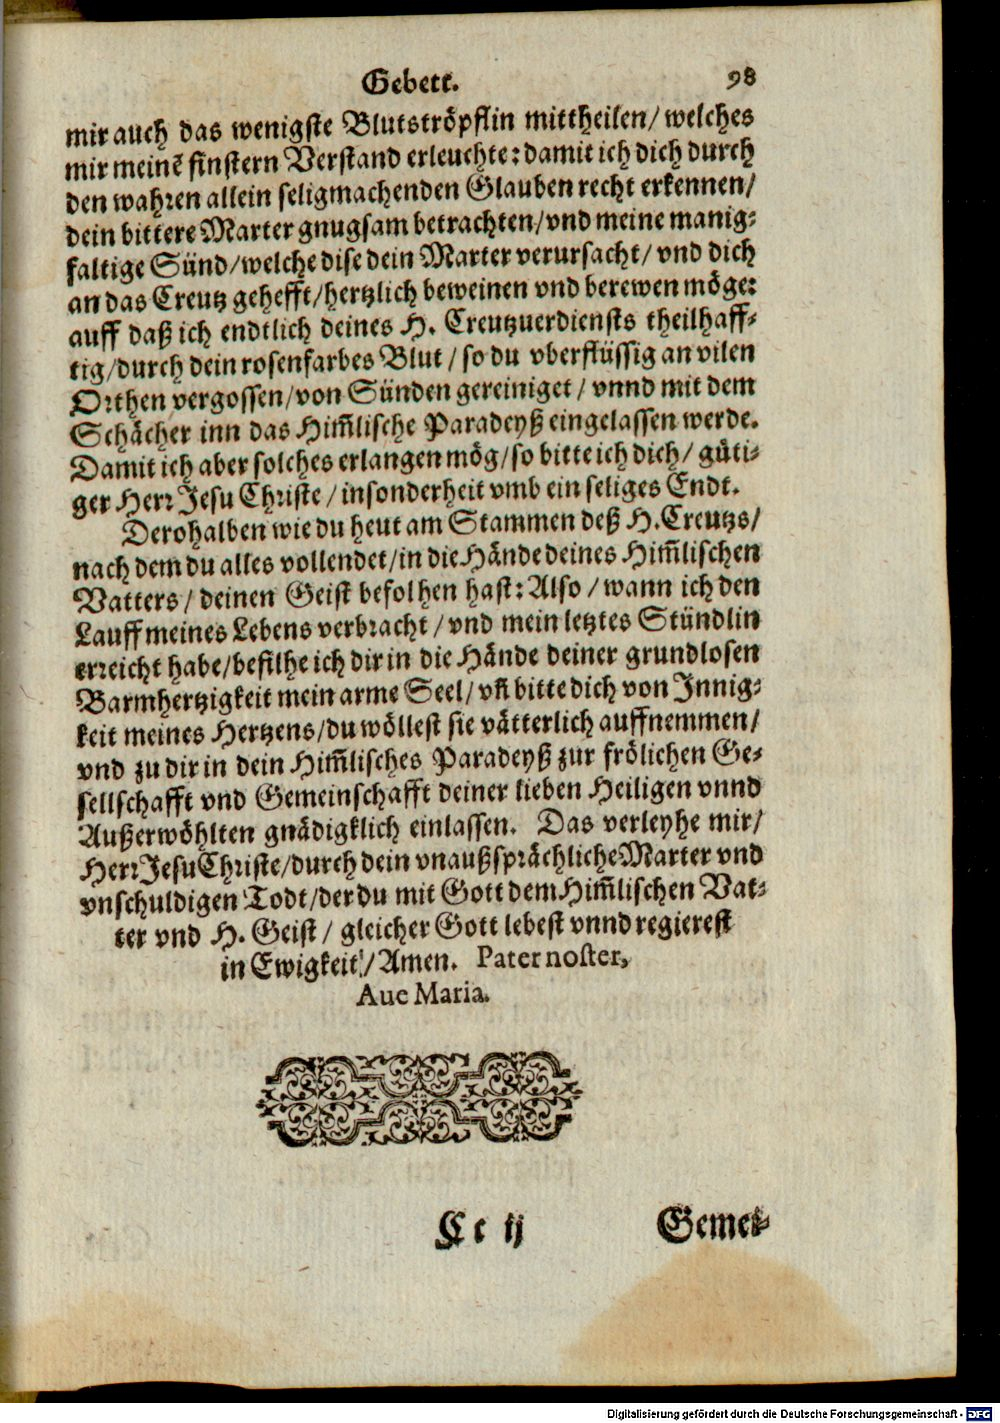 Gebett. 98
mir auch das wenigste Blutströpflin mittheilen/ welches
mir meinẽ finstern Verstand erleuchte: damit ich dich durch
den wahren allein seligmachenden Glauben recht erkennen/
dein bittere Marter gnugsam betrachten/ vnd meine manig-
faltige Sünd/ welche dise dein Marter verursacht/ vnd dich
an das Creutz gehefft/ hertzlich beweinen vnd berewen möge:
auff daß ich endtlich deines H. Creutzuerdiensts theilhaff-
tig/ durch dein rosenfarbes Blut/ so du vberflüssig an vilen
Orthen vergossen/ von Sünden gereiniget/ vnnd mit dem
Schächer inn das Him̃lische Paradeyß eingelassen werde.
Damit ich aber solches erlangen mög/ so bitte ich dich/ güti-
ger Herr Jesu Christe/ insonderheit vmb ein seliges Endt.
Derohalben wie du heut am Stammen deß H. Creutzs/
nach dem du alles vollendet/ in die Hände deines Him̃lischen
Vatters/ deinen Geist befolhen hast: Also/ wann ich den
Lauff meines Lebens verbracht/ vnd mein letztes Stündlin
erreicht habe/ befilhe ich dir in die Hände deiner grundlosen
Barmhertzigkeit mein arme Seel/ vñ bitte dich von Innig-
keit meines Hertzens/ du wöllest sie vätterlich auffnemmen/
vnd zu dir in dein Him̃lisches Paradeyß zur frölichen Ge-
sellschafft vnd Gemeinschafft deiner lieben Heiligen vnnd
Außerwöhlten gnädigklich einlassen. Das verleyhe mir/
Herr Jesu Christe/ durch dein vnaußsprächliche Marter vnd
vnschuldigen Todt/ der du mit Gott dem Him̃lischen Vat-
ter vnd H. Geist/ gleicher Gott lebest vnnd regierest
in Ewigkeit/ Amen. Pater noster,
Aue Maria.
Cc ij Gemei-
Digitalisierung gefördert durch die Deutsche Forschungsgemeinschaft - DFG